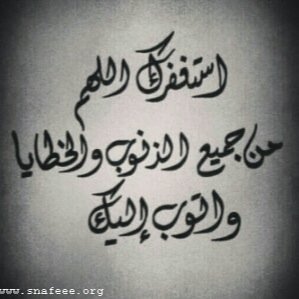 استغفرك اللهم
من جميع الذنوب والخطايا
واتوب إليك
www.snafeee.org